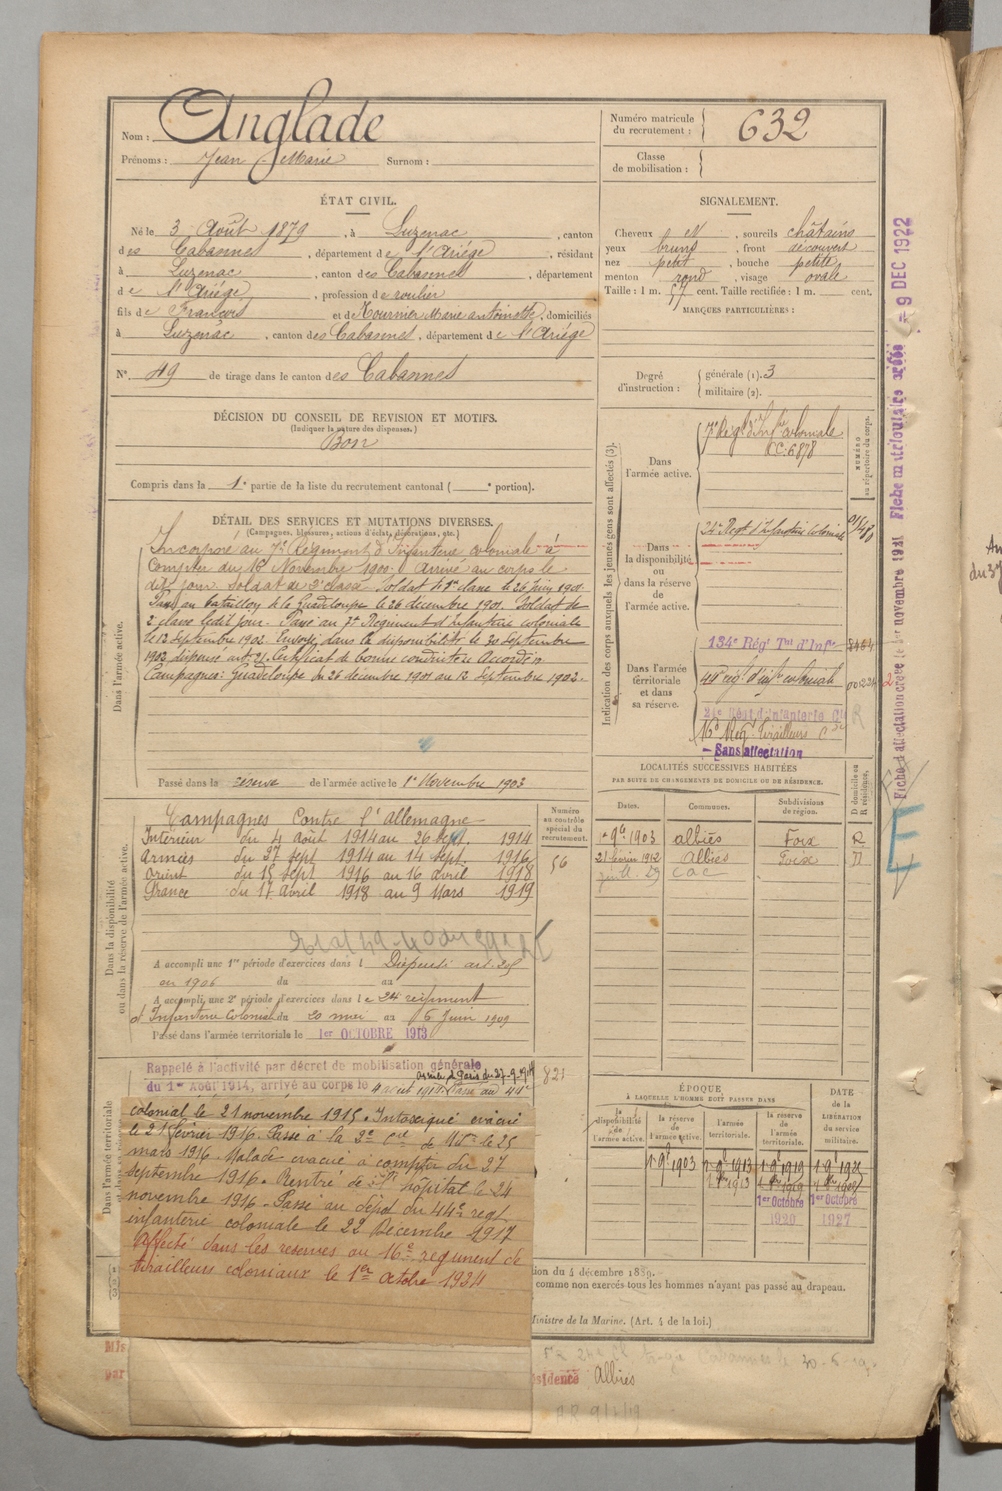 Nom : Anglade
Prénoms : Jean Marie Surnom :
Numéro matricule du recrutement : 632
Classe de mobilisation :
ÉTAT CIVIL.
Né le 3 Août 1879, à Luzenac, canton
des Cabannes, département de l'Ariége, résidant
à Luzenac, canton des Cabannes, département
de l'Ariége, profession de roulier
fils de François et de Mournier Marie antoinette, domiciliés
à Luzenac, canton des Cabannes, département de l'Ariége
N° 49 de tirage dans le canton des Cabannes
SIGNALEMENT.
Cheveux N, sourcils châtains
yeux bruns, front découvert
nez petit, bouche petite
menton rond, visage ovale
Taille : 1 m. 57 cent. Taille rectifiée : 1 m. cent.
MARQUES PARTICULIÈRES :
Degré d'instruction : générale (1). 3
militaire (2).
DÉCISION DU CONSEIL DE REVISION ET MOTIFS.
(Indiquer la nature des dispenses.)
Bon
Compris dans la 1e partie de la liste du recrutement cantonal ( e portion).
DÉTAIL DES SERVICES ET MUTATIONS DIVERSES.
(Campagnes, blessures, actions d'éclat, décorations, etc.)
Dans l'armée active.
Incorporé au 7e Régiment d'Infanterie coloniale à
compter du 16 Novembre 1900. Arrivé au corps le
dit jour. Soldat de 2e classe. Soldat de 1re classe le 26 Juin 1901.
Passé au bataillon de la Guadeloupe le 26 décembre 1901. Soldat de
2e classe ledit jour. Passé au 7e Régiment d'infanterie coloniale
le 12 Septembre 1902. Envoyé dans la disponibilité le 30 Septembre
1903 dispensé art. 21. Certificat de bonne conduite Accordé.
Campagnes : Guadeloupe du 26 décembre 1901 au 12 Septembre 1902.
Passé dans la réserve de l'armée active le 1er Novembre 1903
Indication des corps auxquels les jeunes gens sont affectés (3).
NUMÉRO au répertoire du corps.
Dans l'armée active.
7e Régt d'Infie coloniale
CC : 6878
Dans la disponibilité ou dans la réserve de l'armée active.
24e Régt d'Infanterie coloniale
Dans l'armée territoriale et dans sa réserve.
134e Rég' Tal d'Infie
44e rég' d'infie coloniale
24e Régt d'Infanterie Cle
16e Rég. Tirailleurs Caux
Sans affectation
Fiche d'affectation créée le 1er novembre 1921 Fiche matriculaire créée - 9 DEC 1922
Dans la disponibilité ou dans la réserve de l'armée active.
Campagnes Contre l'Allemagne
Intérieur du 4 Août 1914 au 26 sept. 1914
Armées du 27 sept 1914 au 14 sept. 1916
Orient du 15 sept 1916 au 16 avril 1918
France du 17 Avril 1918 au 9 Mars 1919
A accompli une 1re période d'exercices dans l Dispensé art.
en 1906 du au
A accompli une 2e période d'exercices dans le 24e régiment
d'Infanterie Coloniale du 20 mai au 5 Juin 1909
Passé dans l'armée territoriale le 1er OCTOBRE 1913
Numéro au contrôle spécial du recrutement.
56
821
LOCALITÉS SUCCESSIVES HABITÉES
PAR SUITE DE CHANGEMENTS DE DOMICILE OU DE RÉSIDENCE.
Dates. Communes. Subdivisions de région. D domicile ou R résidence.
1903 albiés Foix R
21 février 1912 Albiés Foix D
Dans l'armée territoriale
Rappelé à l'activité par décret de mobilisation générale
du 1er Août 1914, arrivé au corps le 4 août 1914. Passé au 44e
colonial le 21 novembre 1915. Intoxiqué évacué
le 21 février 1916. Passé à la 2e Cie de Mitses le 25
mars 1916. Malade évacué à compter du 27
septembre 1916. Rentré de l'hôpital le 24
novembre 1916. Passé au dépôt du 44e regt.
infanterie coloniale le 22 Décembre 1917
Affecté dans les reserves au 16e regiment de
tirailleurs coloniaux le 1er Octobre 1924
ÉPOQUE
À LAQUELLE L'HOMME DOIT PASSER DANS
la disponibilité de l'armée active. la réserve de l'armée active. l'armée territoriale. la réserve de l'armée territoriale. DATE de la LIBÉRATION du service militaire.
1903 1913 1919
1er Octobre 1er Octobre
1920 1927
du 4 décembre 1889.
comme non exercés tous les hommes n'ayant pas passé au drapeau.
Ministre de la Marine. (Art. 4 de la loi.)
Albiès